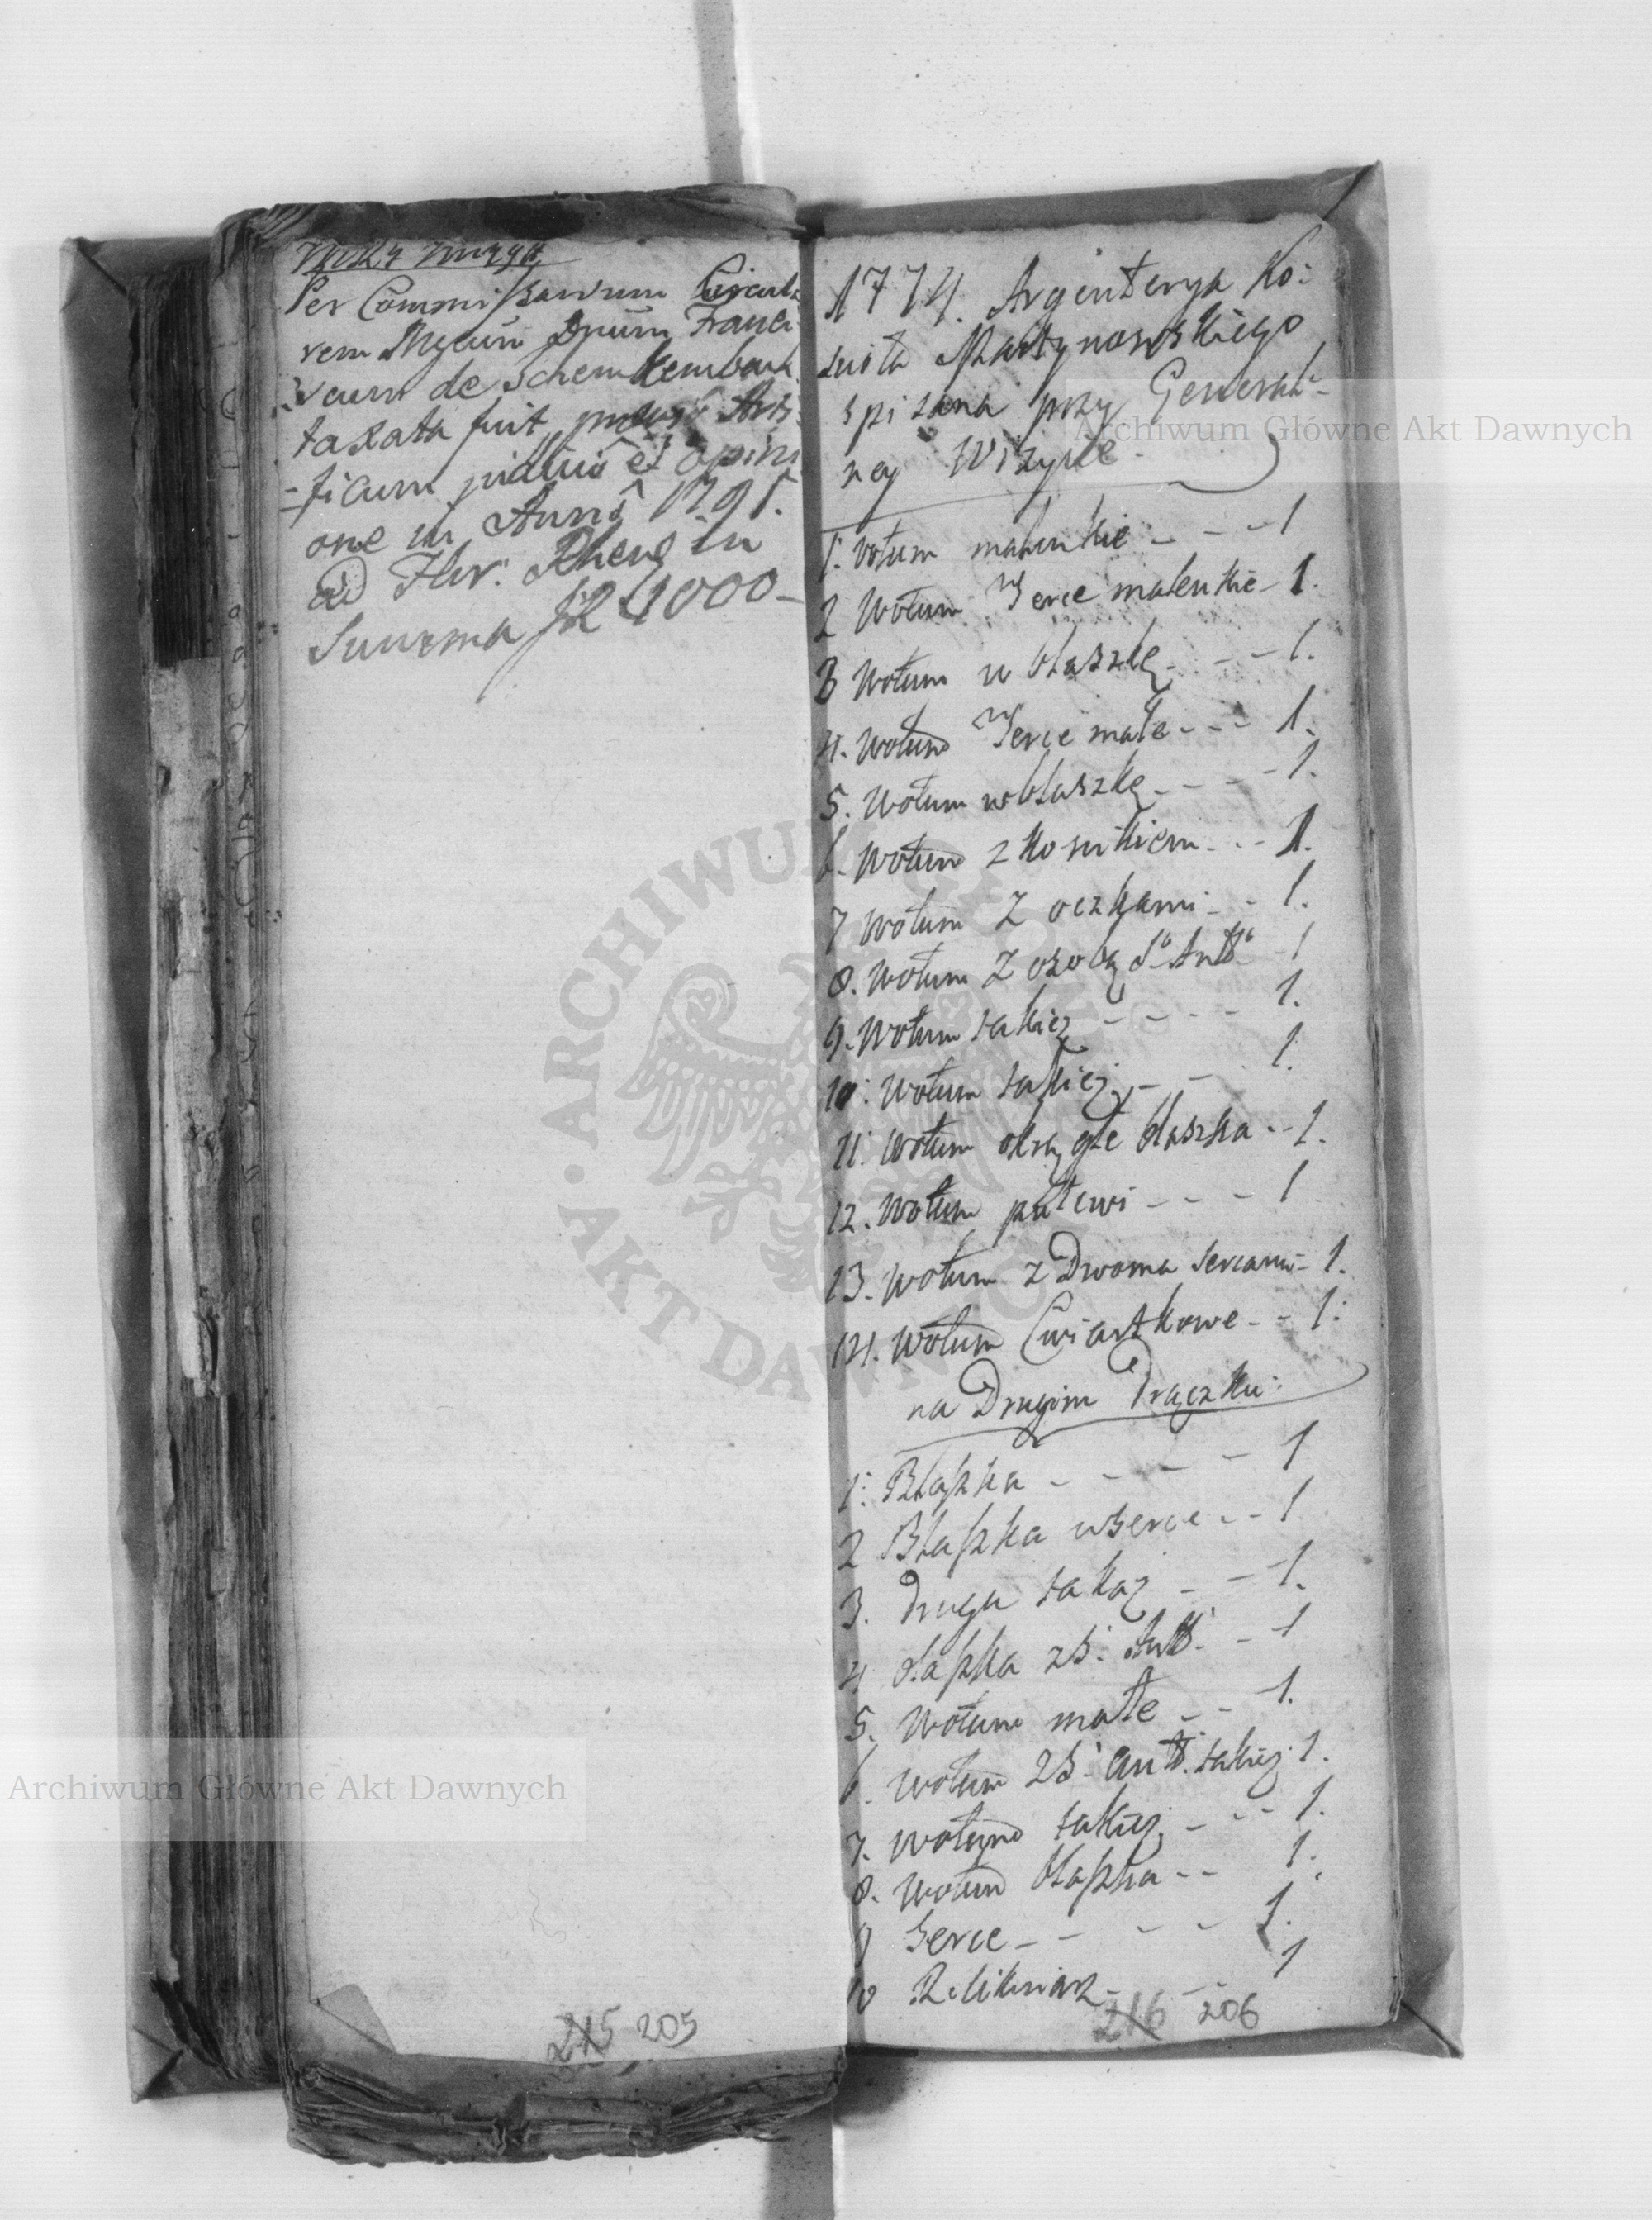 Per Commissarium Circula
rem Mgcum Dnum Franci
scum de Schemkembach
taxata fuit Arti
ficum judicio et opini
one in Anno 1791.
ad Flor: Rhen in
Summa fl 4000
215 205
1774. Argenterya Ko:
scioła Martynowskiego
spisana przy General
ney Wizycie.
1: Wotum malinkie - - - 1
2 Wotum Serce malenkie - 1.
3 Wotum w blaszkę - - - 1.
4. Wotum Serce małe - - - 1.
5. Wotum w blaszkę - - - - 1.
6. Wotum z konikiem - - - 1.
7 Wotum z oczkami - - 1.
8. Wotum z osobą S° Ant° - 1
9. Wotum takiez - - - - - 1.
10: Wotum takiez - - - 1.
11: Wotum okrągłe blaszka - - 1.
12. Wotum - - - 1
13. Wotum z Dwoma sercami - 1.
14. Wotum Cwiartkowe - - 1:
na Drugim Drązku:
1: Blaszka - - - - - 1
2 Blaszka w serce - - - 1
3. Druga takaz - - 1.
4 blaszka z S: Ant: - 1
5. Wotum małe - - 1.
6. Wotum z S: Ant: takiez: 1.
7. Wotum takiez - - - 1.
8. Wotum blaszka - - 1.
9 Serce - - - - 1.
10 Relikwiarz - - 1
216 206
Archiwum Główne Akt Dawnych
Archiwum Główne Akt Dawnych
ARCHIWUM GŁÓWNE AKT DAWNYCH